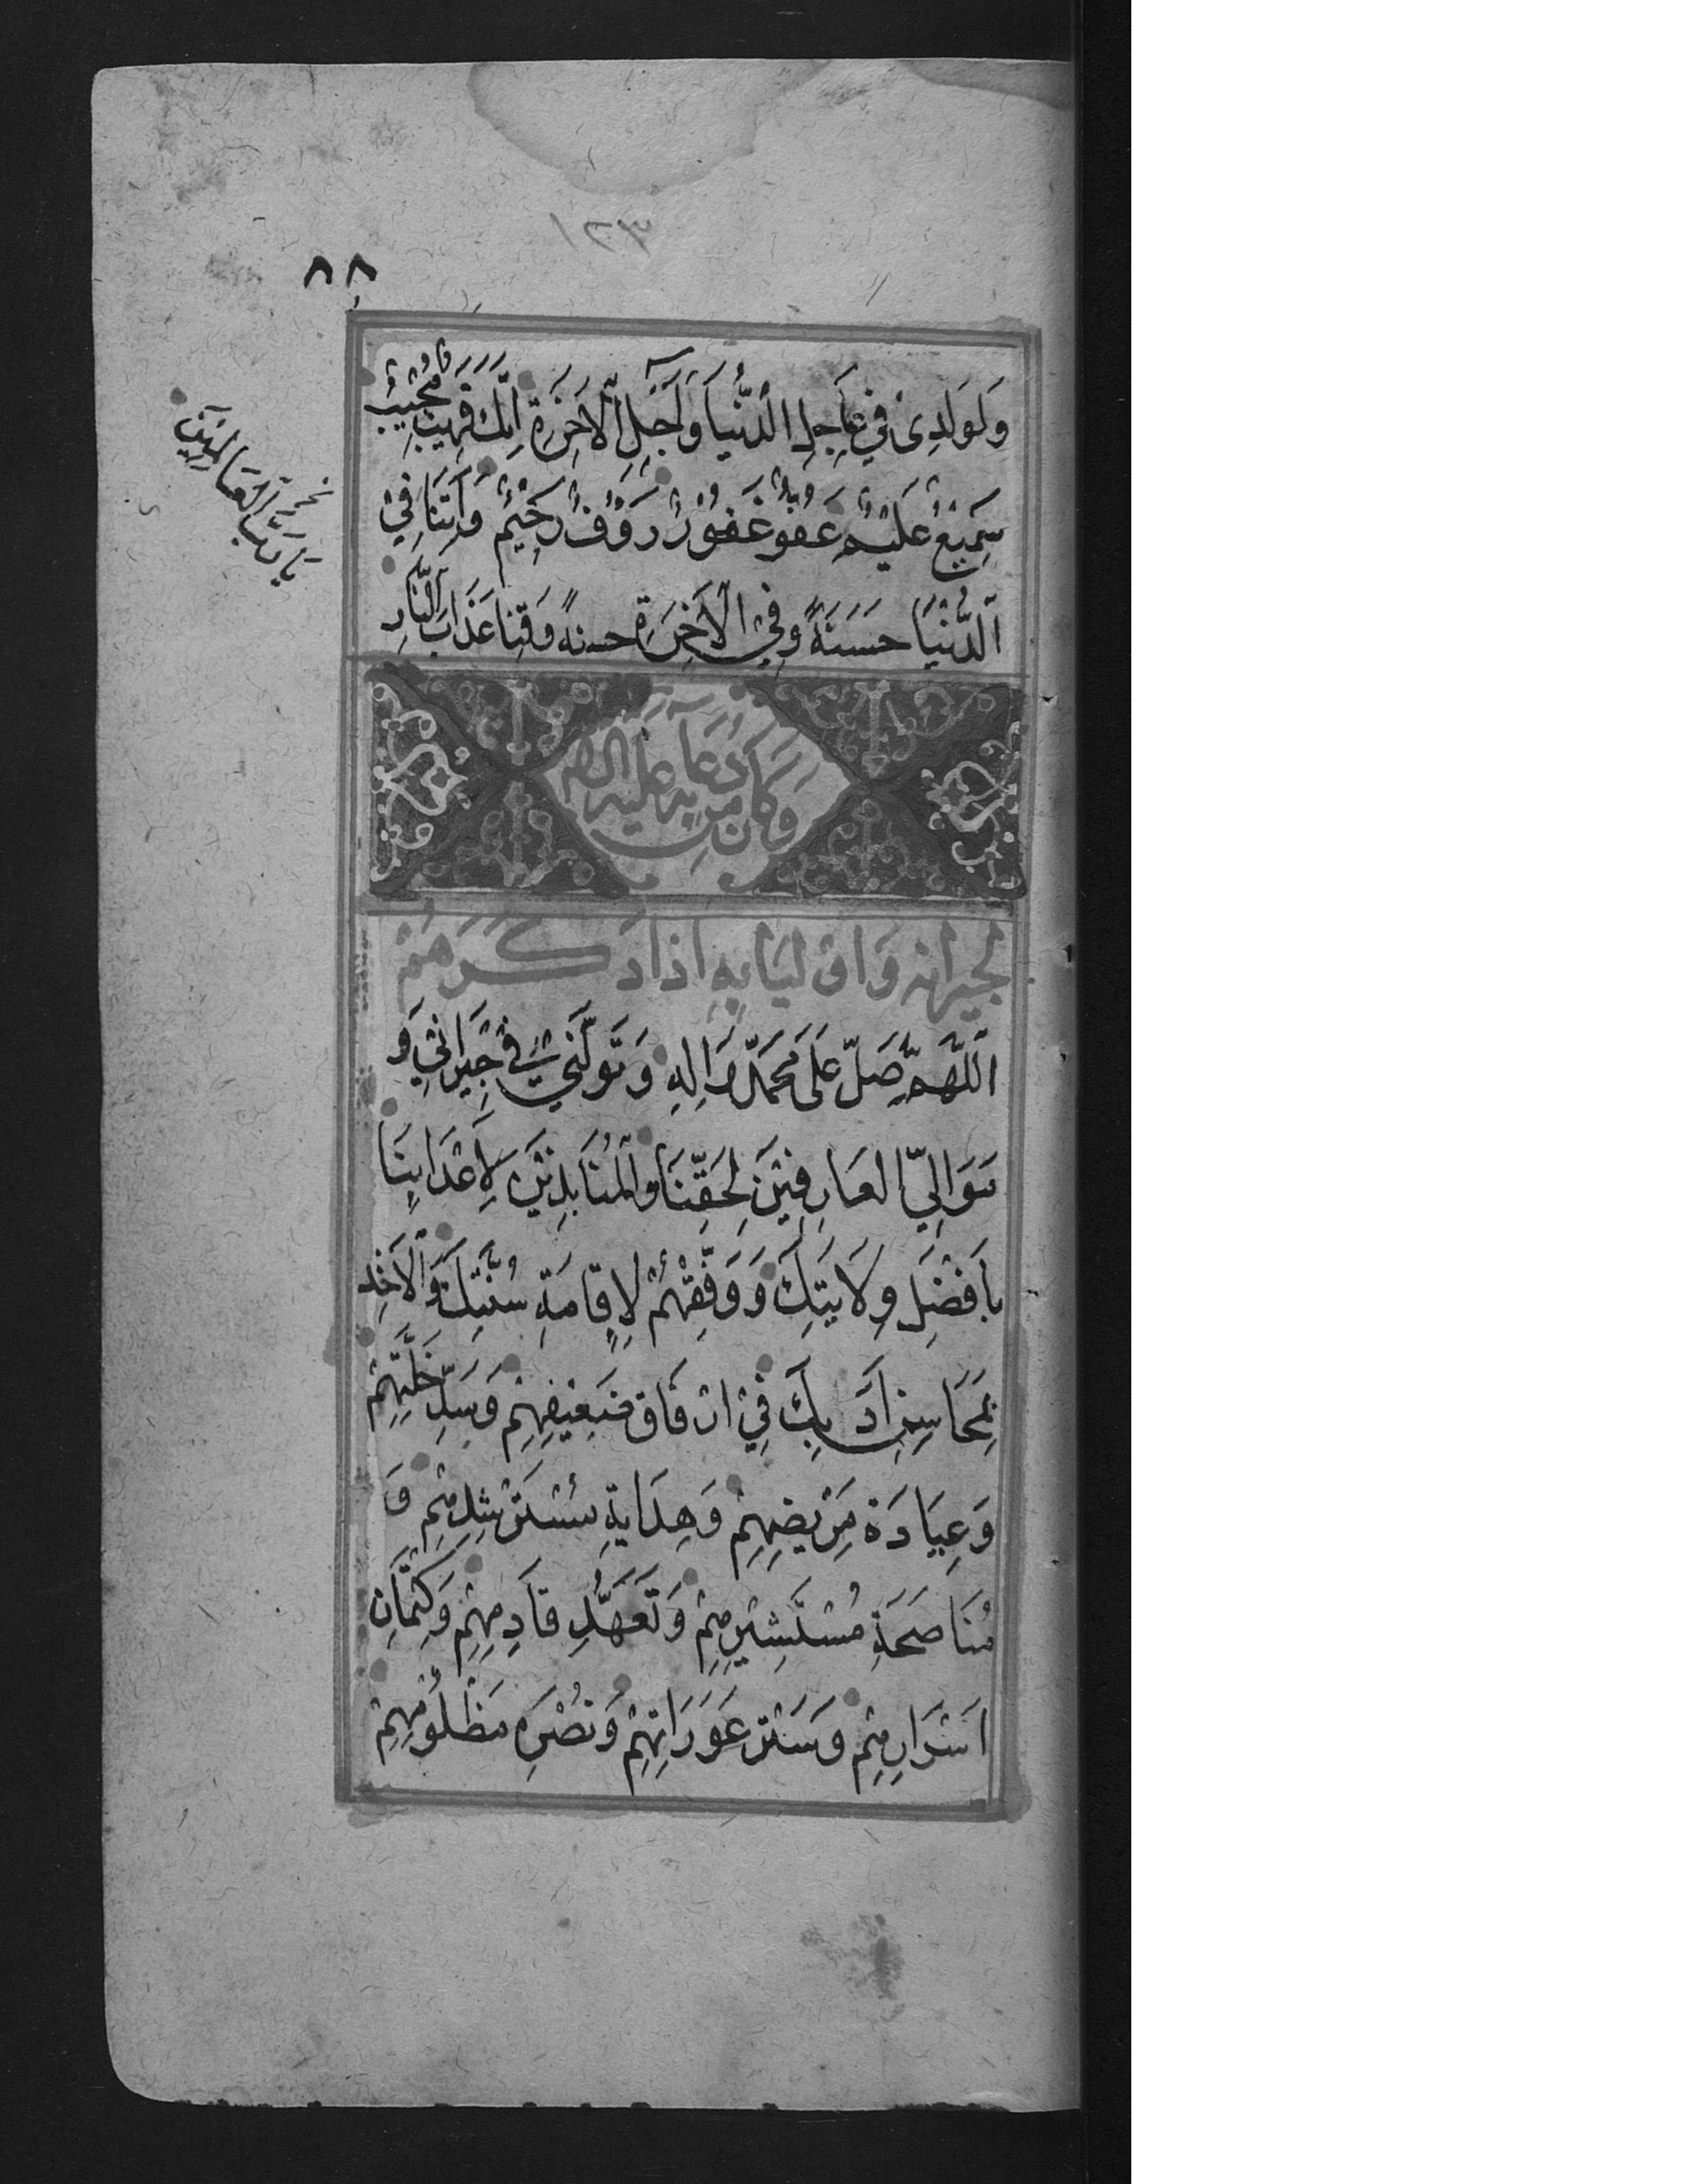 ٨٨
وَلِوَلَدِىْ فِي عَاجِلِ الدُّنْيَا وَآجِلِ الْآخِرَةِ اِنَّكَ قَرِيْبٌ مُجِيْبٌ
سَمِيْعٌ عَلِيْمٌ عَفُوٌّ غَفُوْرٌ رَؤُفٌ رَحِيْمٌ وَاٰتِنَا فِيْ
الدُّنْيَا حَسَنَةً وَفِي الْاٰخِرَةِ حسنةً وَقِنَا عَذَابَ النَّارِ
يَا رَبَّ الْعَالَمِيْنَ
وَكَانَ مِنْ دُعَآئِهِ عَلَيْهِ السَّلَامُ
لجيرانه وَاوليَايِهِ اذَا ذَكَرَهُمْ
اَللّٰهُمَّ صَلِّ عَلَى مُحَمَّدٍ وَاٰلِهِ وَتَوَلَّنِيْ فِي جِيْرَانِيْ وَ
مَوَالِيَّ الْعَارِفِيْنَ لِحَقِّنَا وَالْمُنَابِذِيْنَ لِاَعْدَايِنَا
بِاَفْضَلِ وِلَايَتِكَ وَوَفِّقْهُمْ لِاِقَامَةِ سُنَّتِكَ وَالْاَخْذِ
بِمَحَاسِنِ اَدَبِكَ فِيْ ارفَاقِ ضَعِيْفِهِمْ وَسَدِّ خَلَّتِهِمْ
وَعِيَادَةِ مَرِيْضِهِمْ وَهِدَايَةِ مُسْتَرْشِدِهِمْ وَ
مُنَاصَحَةِ مُسْتَشِيْرِهِمْ وَتَعَهُّدِ قَادِمِهِمْ وَكِتْمَانِ
اَسْرَارِهِمْ وَسَتْرِ عَوَرَاتِهِمْ وَنُصْرَةِ مَظْلُوْمِهِمْ